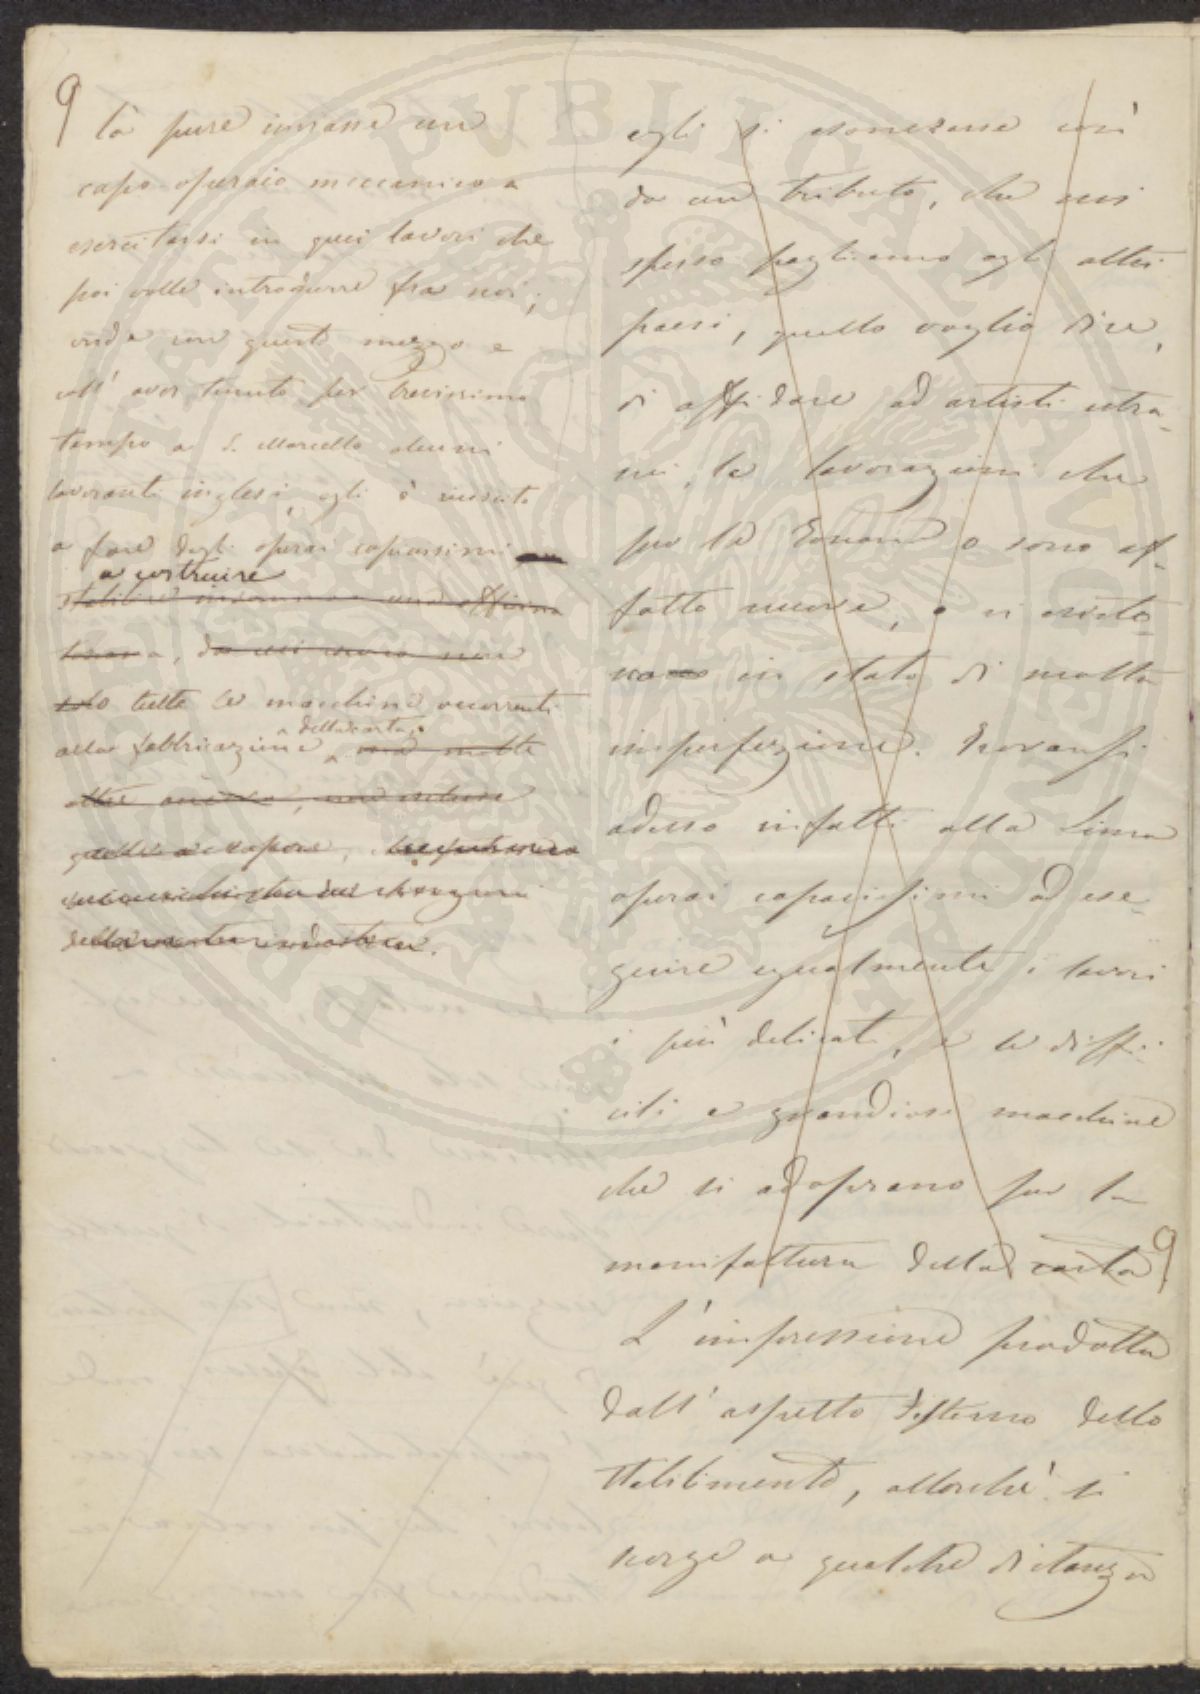 9 là pure inviasse un
capo-operaio meccanico a
esercitarsi in quei lavori che
poi volle introdurre fra noi;
onde con questo mezzo e
coll' aver tenuto per brevissimo
tempo a S. Marcello alcuni
lavoranti inglesi, egli è riescito
a fare degli operai capacissimi
a costruire
stabilire insomma una officina
da cui escono non
solo tutte le macchine occorrenti
alla fabbricazione della carta, ma molte
altre ancora, non escluse
quelle a vapore,
egli si esonerasse così
da un tributo, che noi
spesso paghiamo agli altri
paesi, quello voglio dire,
di affidare ad artisti estra-
nei, le lavorazioni che
per la Toscana o sono af-
fatto nuove, o vi esisto-
no in stato di molta
imperfezione. Trovansi
adesso infatti alla Lima
operai capacissimi ad ese-
guire egualmente i lavori
i più delicati, e le diffi-
cili e grandiose macchine
che si adoprano per la
manifattura della carta 9
L' impressione prodotta
dall' aspetto esterno dello
stabilimento, allorché si
scorge a qualche distanza